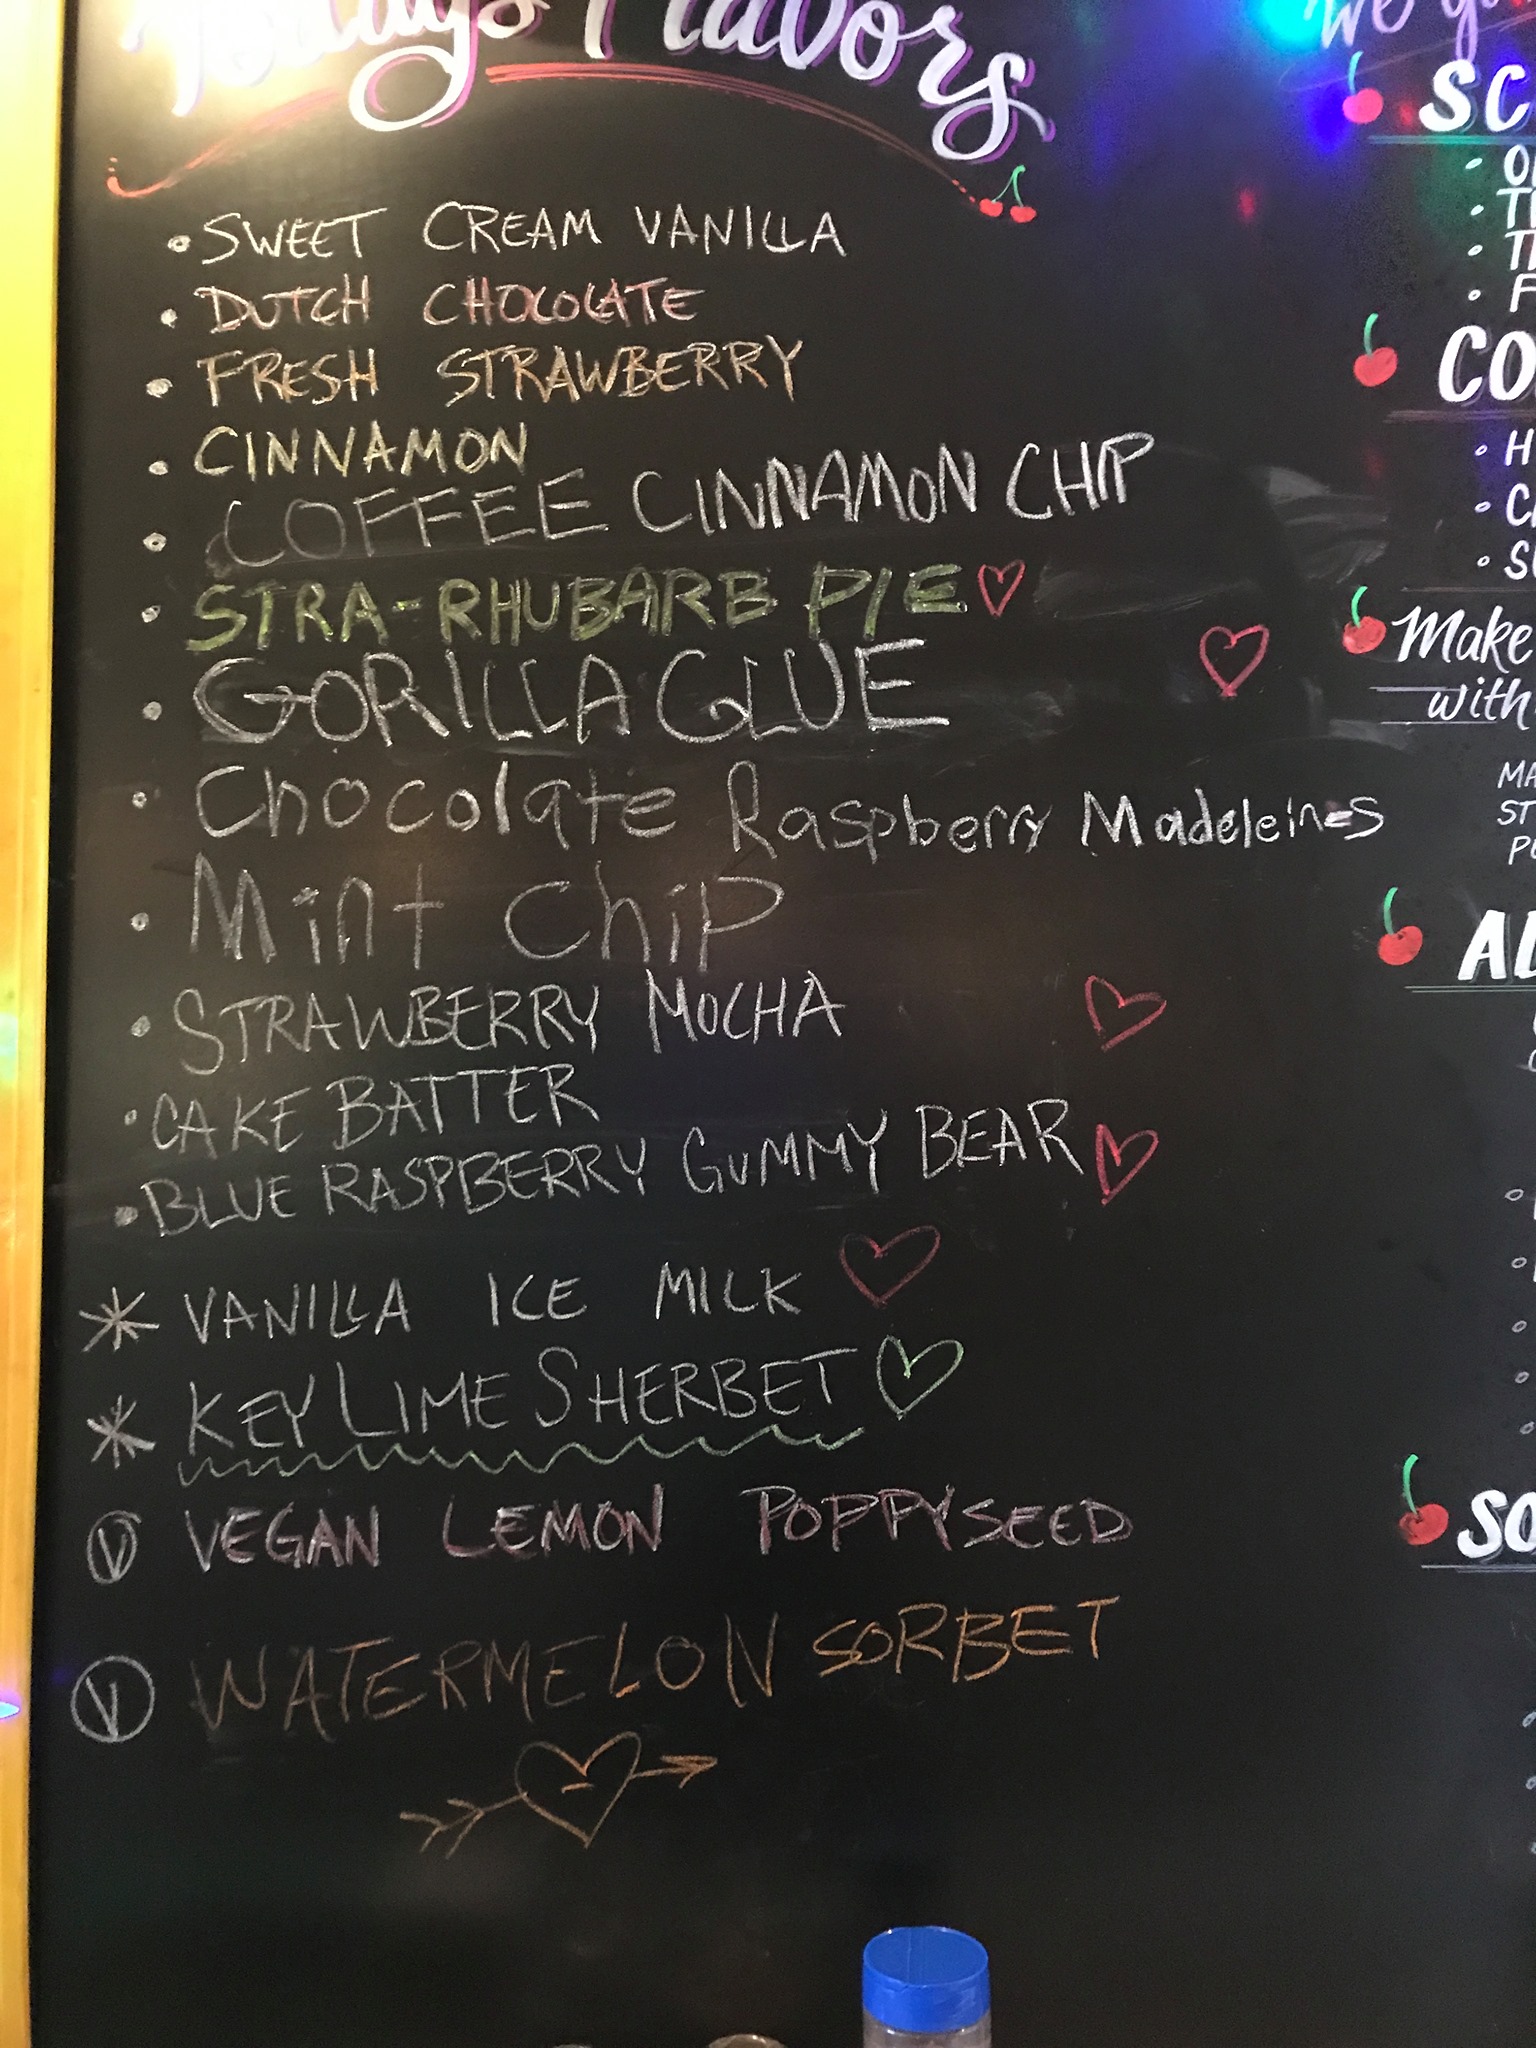 Todays Flavors
• SWEET CREAM VANILLA
• DUTCH CHOCOLATE
• FRESH STRAWBERRY
• CINNAMON
• COFFEE CINNAMON CHIP
• STRA-RHUBARB PIE
• GORILLA GLUE
• Chocolate Raspberry Madeleines
• Mint Chip
• STRAWBERRY MOCHA
• CAKE BATTER
• BLUE RASPBERRY GUMMY BEAR
* VANILLA ICE MILK
* KEY LIME SHERBET
Ⓥ VEGAN LEMON POPPYSEED
Ⓥ WATERMELON SORBET
We
SC
CO
Make
with
MA
ST
SO